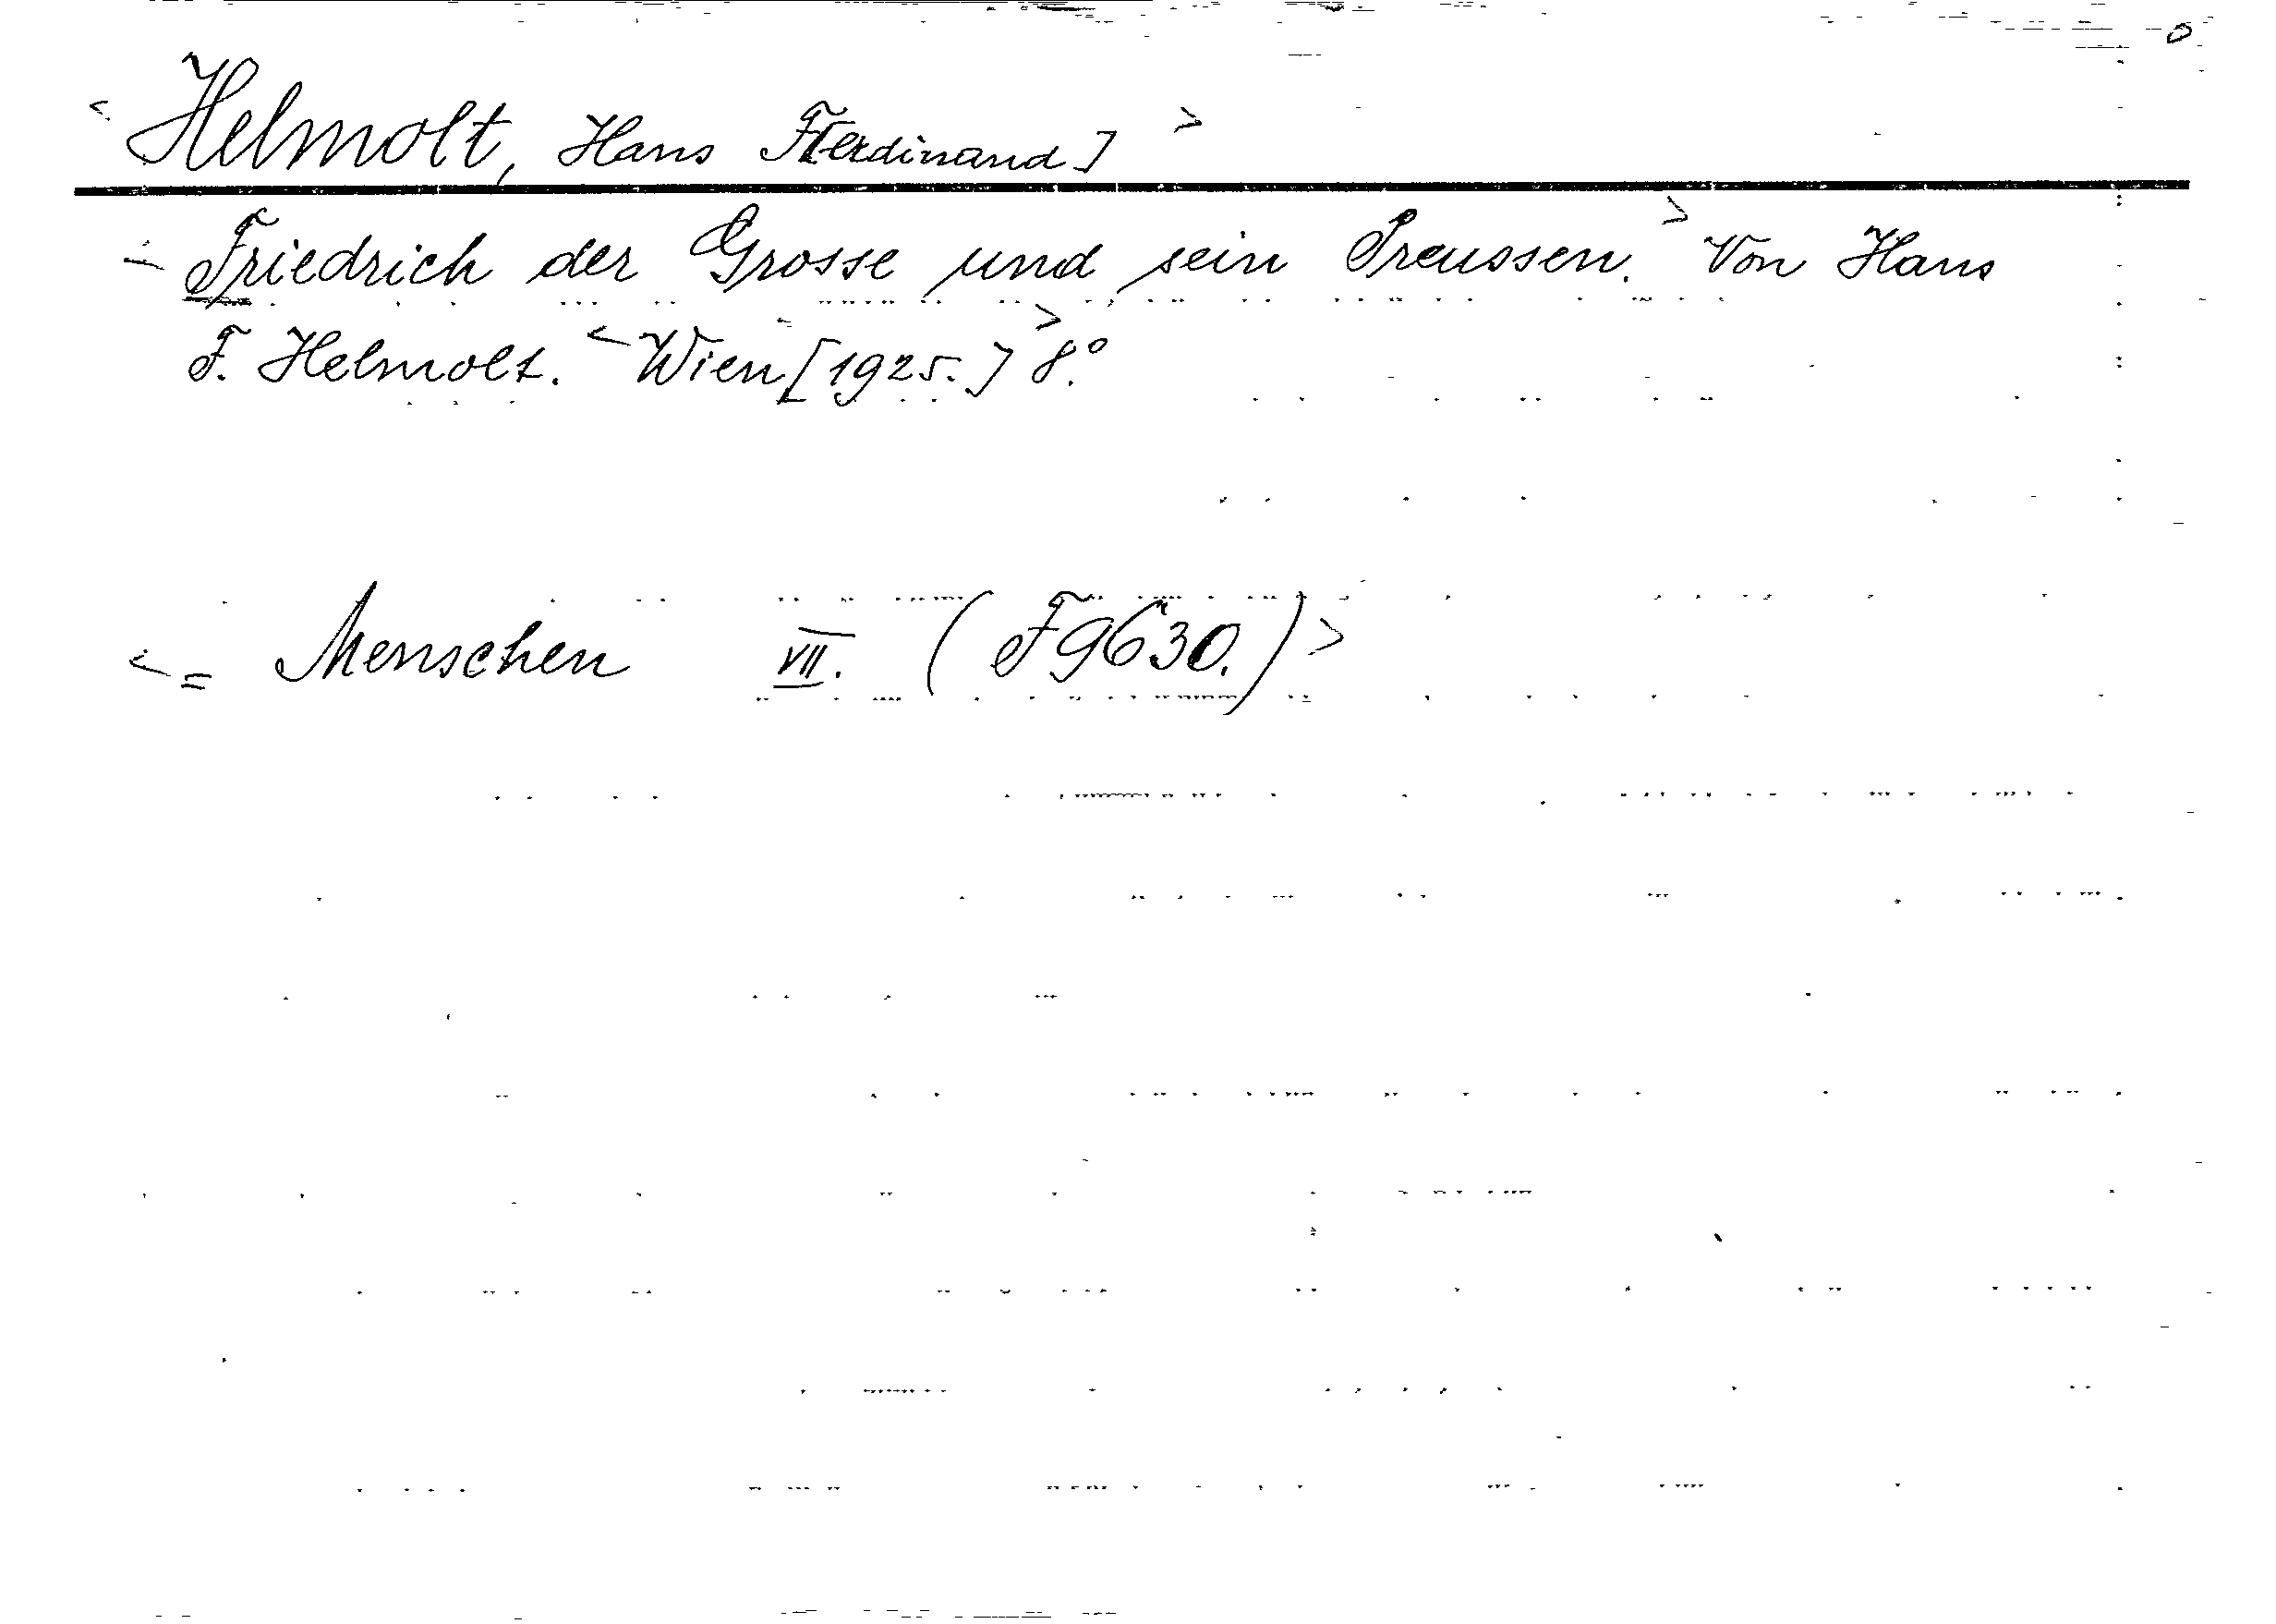 < Helmolt, Hans F[erdinand] >
< Friedrich der Grosse und sein Preussen. > Von Hans
F. Helmolt. < Wien [1925.] > 8.°
< = Menschen VII. (F9630.) >